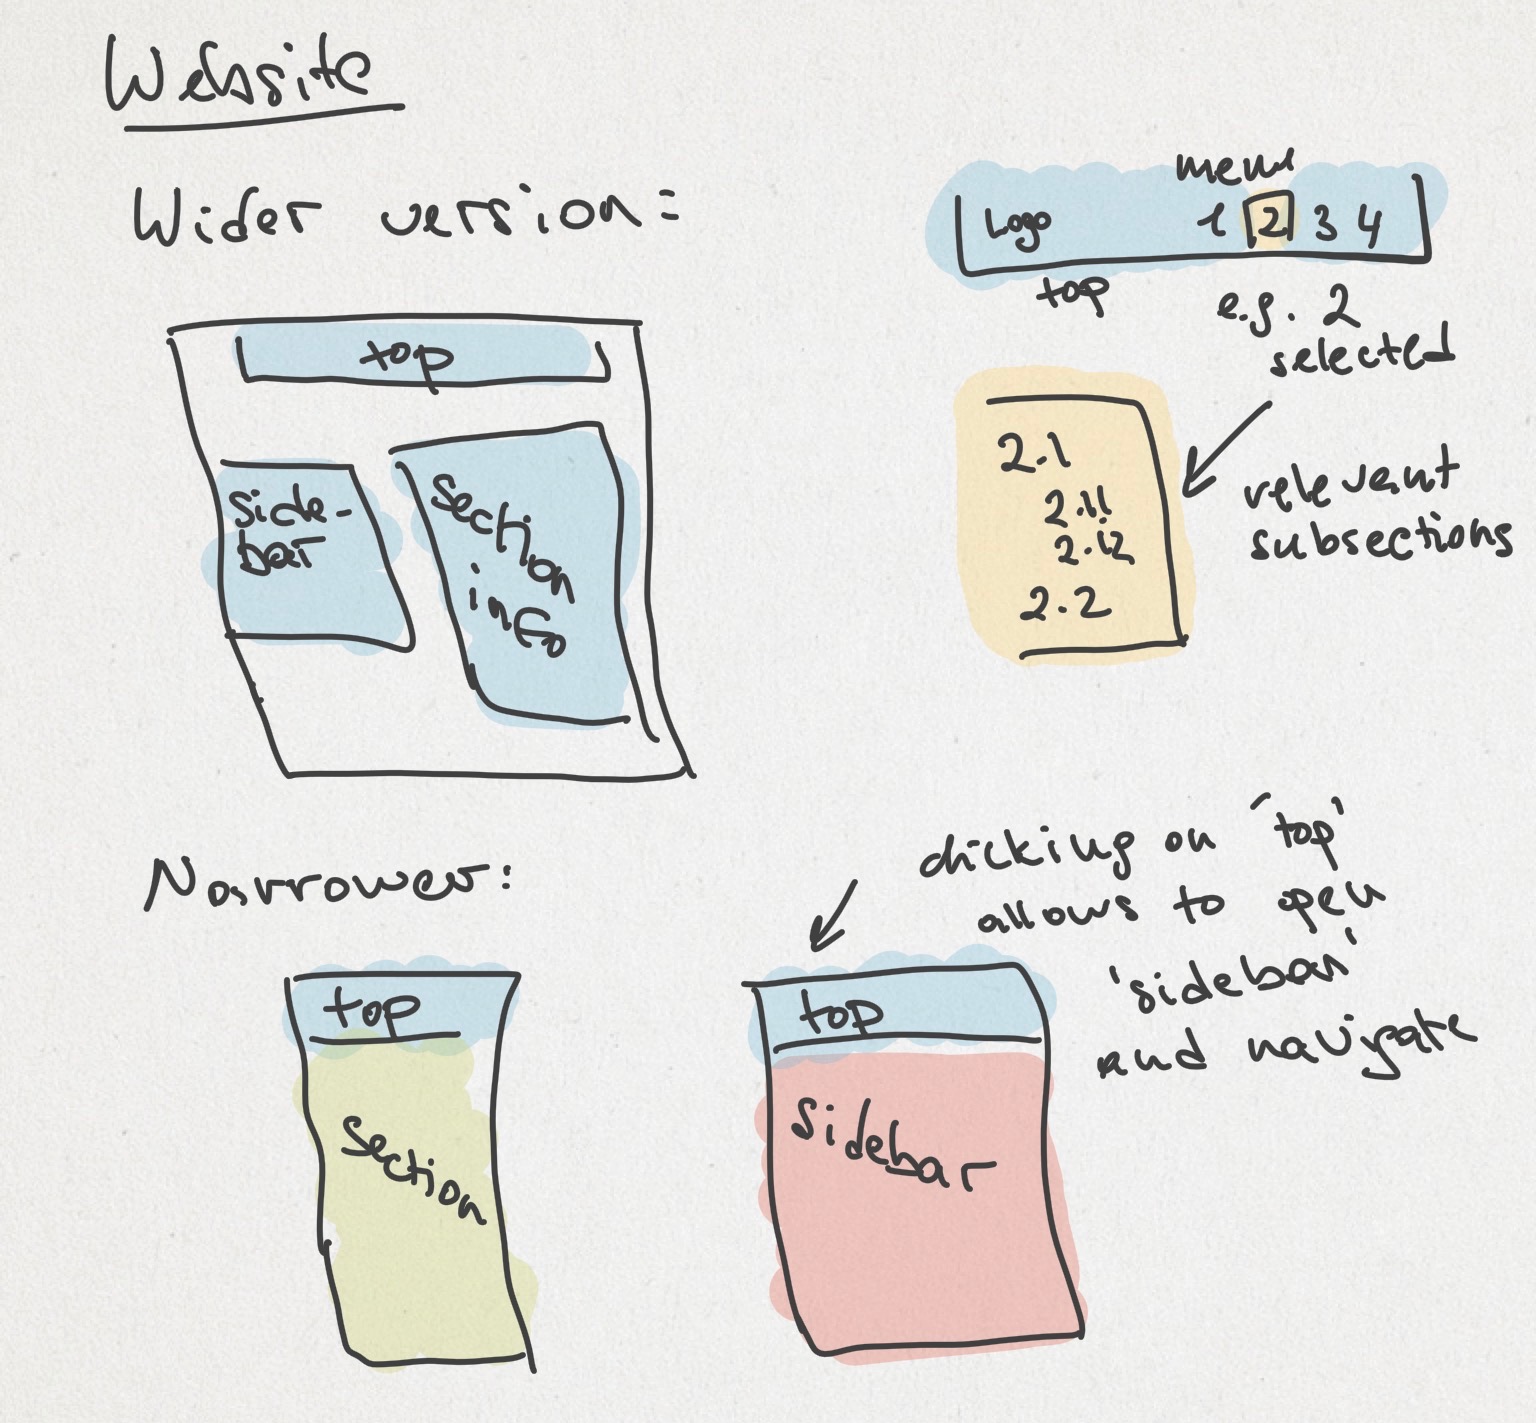 Website
Wider version:
top
side-
bar
Section
info
menu
Logo 1 2 3 4
top
e.g. 2
selected
2.1
2.11
2.12
2.2
relevant
subsections
Narrower:
top
Section
clicking on 'top'
allows to open
'sidebar'
and navigate
top
Sidebar